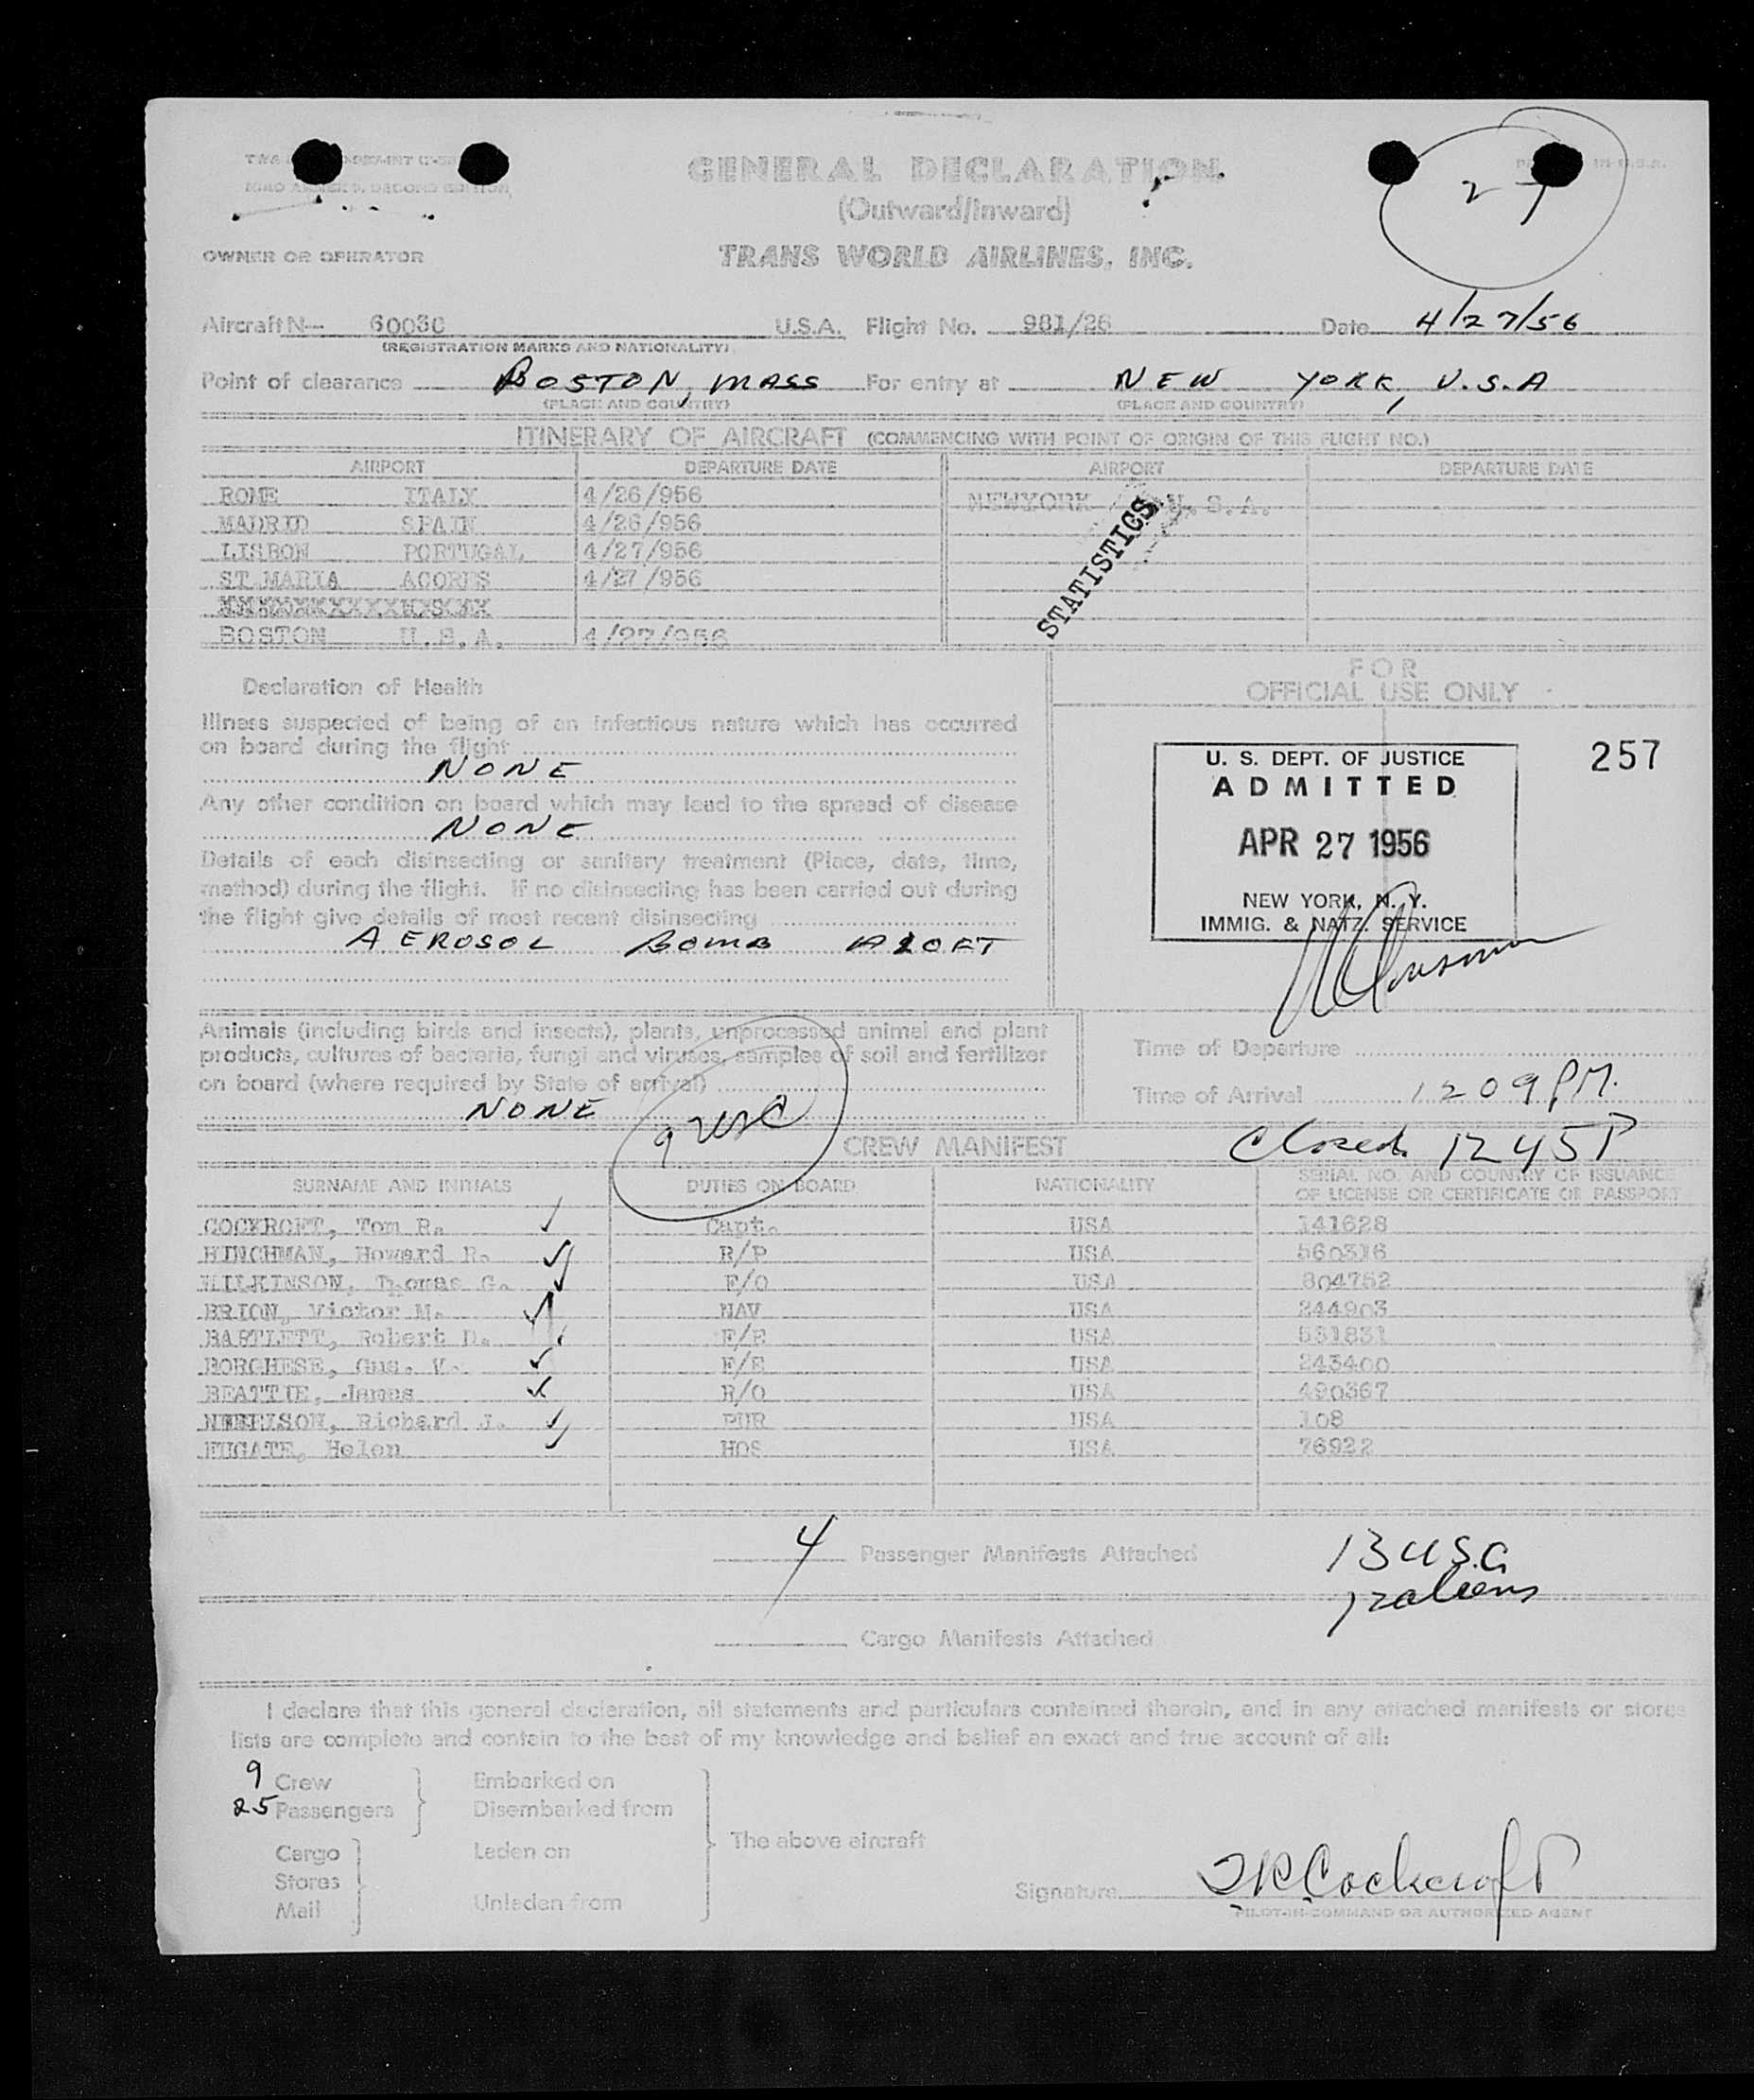 GENERAL DECLARATION
(Outward/Inward)
27
OWNER OR OPERATOR
TRANS WORLD AIRLINES, INC.
Aircraft N- U.S.A. Flight No. Date 4/27/56
(REGISTRATION MARKS AND NATIONALITY)
Point of clearance BOSTON, MASS For entry at NEW YORK, U.S.A
(PLACE AND COUNTRY) (PLACE AND COUNTRY)
ITINERARY OF AIRCRAFT (COMMENCING WITH POINT OF ORIGIN OF THIS FLIGHT NO.)
AIRPORT DEPARTURE DATE AIRPORT DEPARTURE DATE
ROME ITALY 4/26/956 NEWYORK U.S.A.
MADRID SPAIN 4/26/956
LISBON PORTUGAL 4/27/956
ST MARIA ACORES 4/27/956
BOSTON U.S.A. 4/27/956
STATISTICS
Declaration of Health
FOR
OFFICIAL USE ONLY
Illness suspected of being of an infectious nature which has occurred
on board during the flight
NONE
Any other condition on board which may lead to the spread of disease
NONE
Details of each disinsecting or sanitary treatment (Place, date, time,
method) during the flight. If no disinsecting has been carried out during
the flight give details of most recent disinsecting
AEROSOL BOMB ALOFT
U. S. DEPT. OF JUSTICE
ADMITTED
APR 27 1956
NEW YORK, N. Y.
IMMIG. & NATZ. SERVICE
257
Animals (including birds and insects), plants, unprocessed animal and plant
products, cultures of bacteria, fungi and viruses, samples of soil and fertilizer
on board (where required by State of arrival)
NONE
9 USC
Time of Departure
Time of Arrival 1209 PM.
Closed 1245P
CREW MANIFEST
SURNAME AND INITIALS DUTIES ON BOARD NATIONALITY SERIAL NO. AND COUNTRY OF ISSUANCE
OF LICENSE OR CERTIFICATE OR PASSPORT
COCKROFT, Tom R. Capt. USA 141628
HINCHMAN, Howard R. R/P USA 560316
WILKINSON, Thomas G. F/O USA 804752
BRION, Victor M. NAV USA 244903
BARTLETT, Robert D. F/E USA 531831
BORGHESE, Gus. V. F/E USA 243400
BEATTIE, James R/O USA 490367
Richard J. PUR USA 108
FUGATE, Helen HOS USA 76922
4 Passenger Manifests Attached
13 USC
12 aliens
Cargo Manifests Attached
I declare that this general declaration, all statements and particulars contained therein, and in any attached manifests or stores
lists are complete and contain to the best of my knowledge and belief an exact and true account of all:
9 Crew
25 Passengers
Embarked on
Disembarked from
Cargo
Stores
Mail
Laden on
Unladen from
The above aircraft
Signature TR Cockcroft
PILOT-IN-COMMAND OR AUTHORIZED AGENT